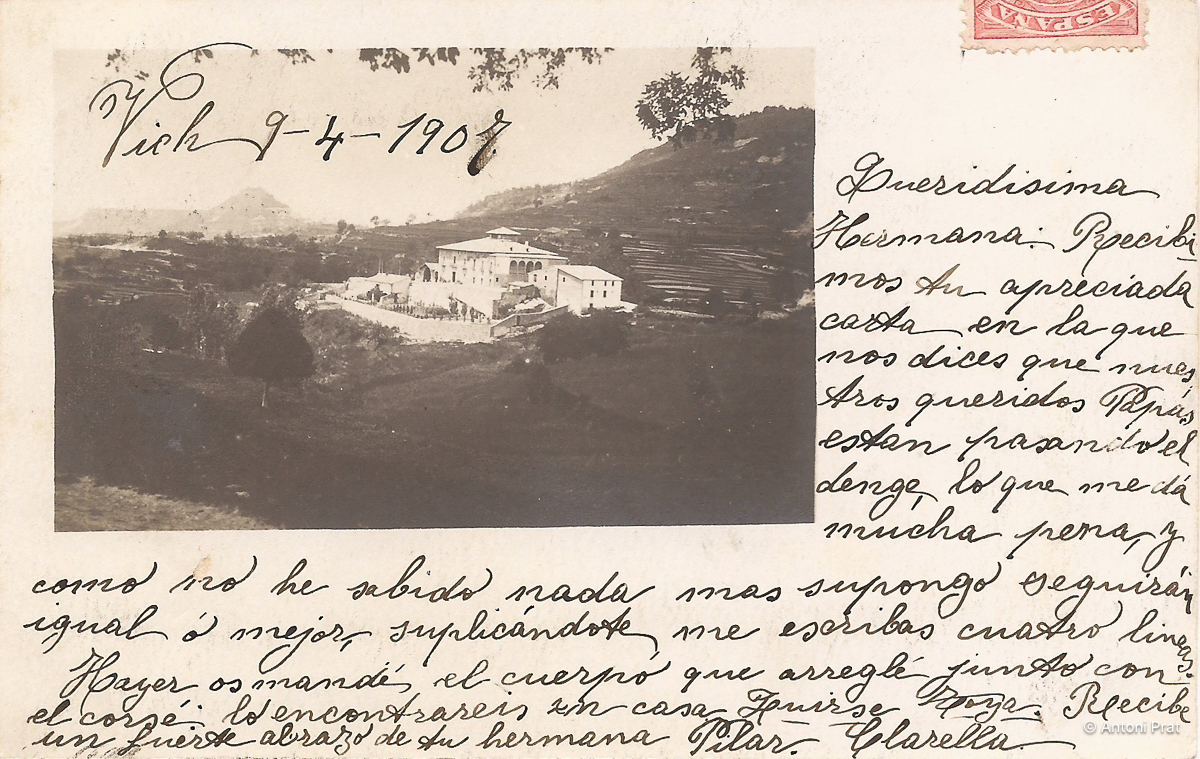 ESPAÑA
Vich 9-4-1907.
Queridisima
Hermana: Recibi-
mos tu apreciada
carta en la que
nos dices que nues
tros queridos Papás
estan pasando el
denge, lo que me dá
mucha pena, y
como no he sabido nada mas supongo seguirán
igual ó mejor, suplicándote, me escribas cuatro lineas.
Hayer os mandé el cuerpo que arreglé junto con
el corsé: lo encontrareis en casa Recibe
un fuerte abrazo de tu hermana Pilar. Clarella
© Antoni Prat